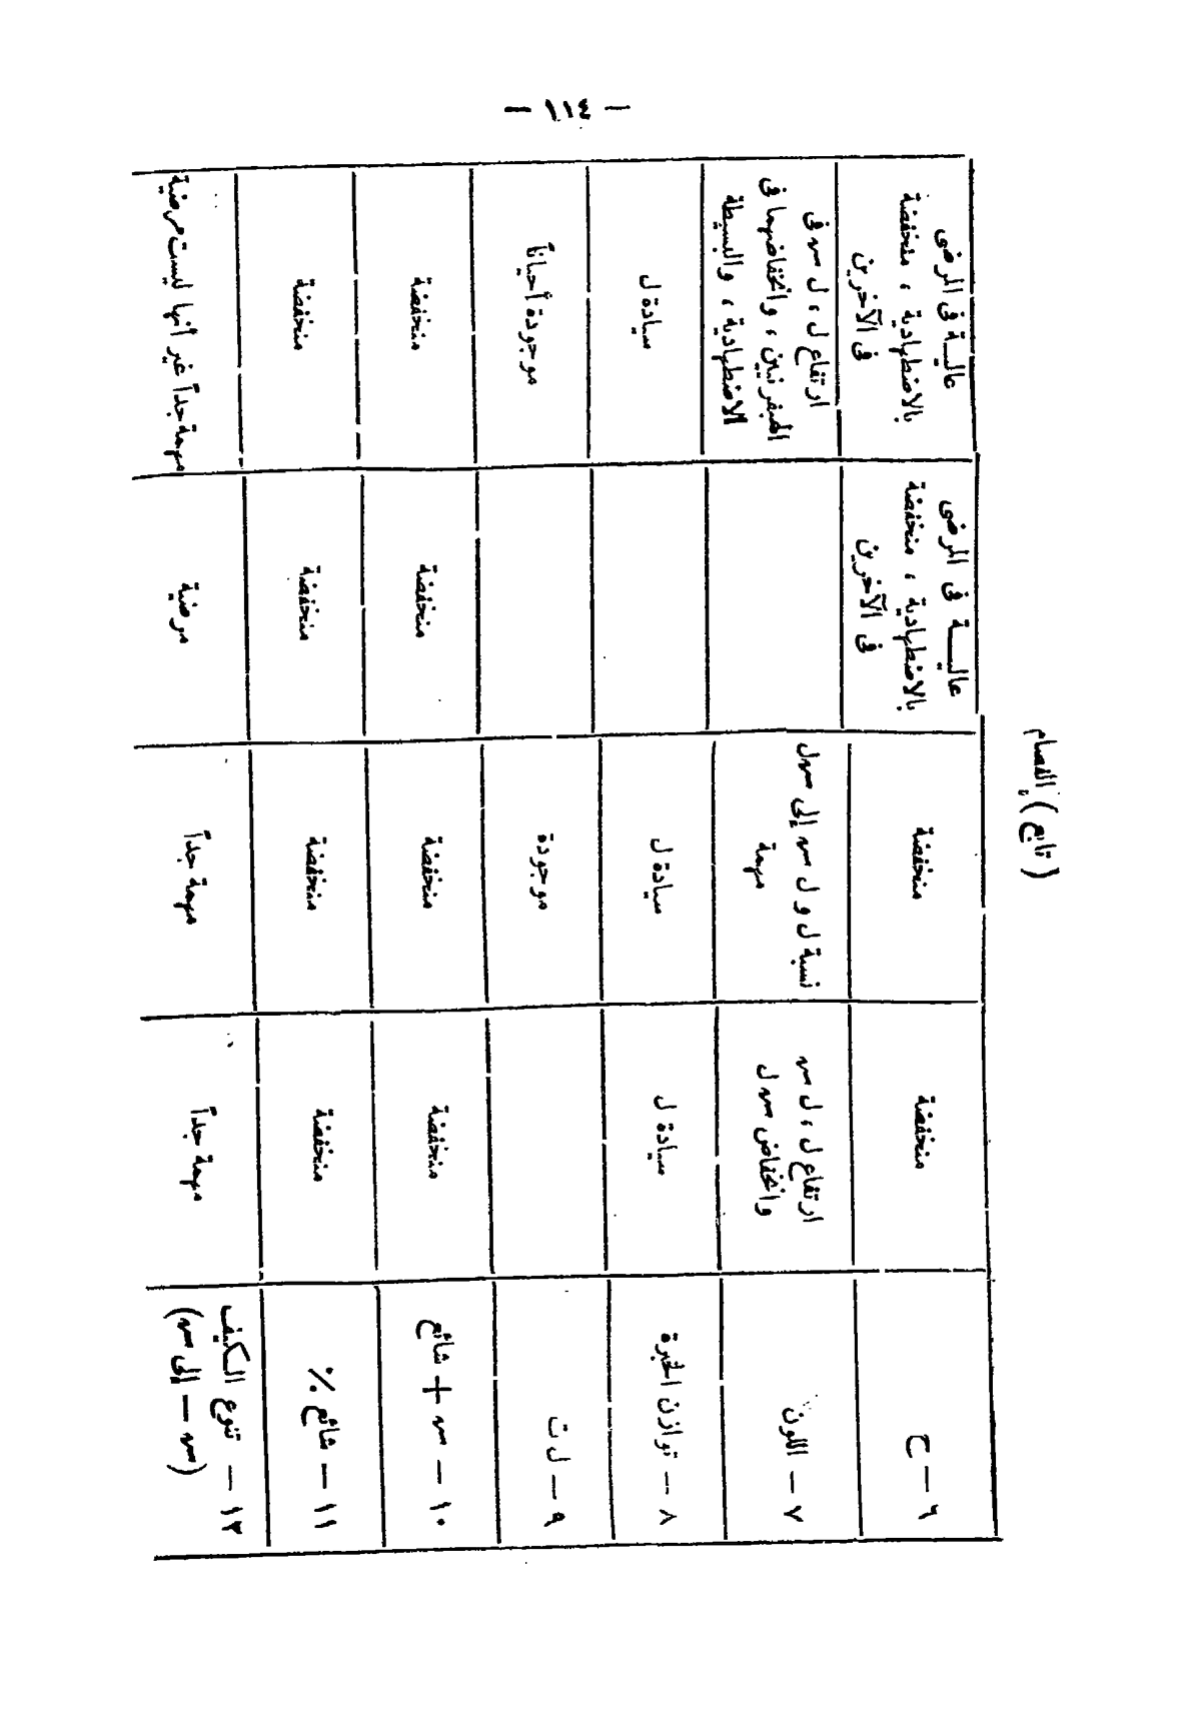 — ١١٤ —
( تابع ) الفصام
٦ — ح
منخفضة
منخفضة
عالية فى المرضى
بالاضطهادية ، منخفضة
فى الآخرين
عالية فى المرضى
بالاضطهادية ، منخفضة
فى الآخرين
٧ — اللون
ارتفاع ل ، ل س
وانخفاض س ل
نسبة ل و ل س إلى س ل
مهمة
ارتفاع ل ، ل س فى
الهيفرنيين ، وانخفاضهما فى
الاضطهادية ، والبسيطة
٨ — توازن الخبرة
سيادة ل
سيادة ل
سيادة ل
٩ — ل ت
موجودة
موجودة أحياناً
١٠ — س + شائع
منخفضة
منخفضة
منخفضة
منخفضة
١١ — شائع ٪
منخفضة
منخفضة
منخفضة
منخفضة
١٢ — تنوع الكيف
( س — إلى س )
مهمة جداً
مهمة جداً
مرضية
مهمة جداً غير أنها ليست مرضية